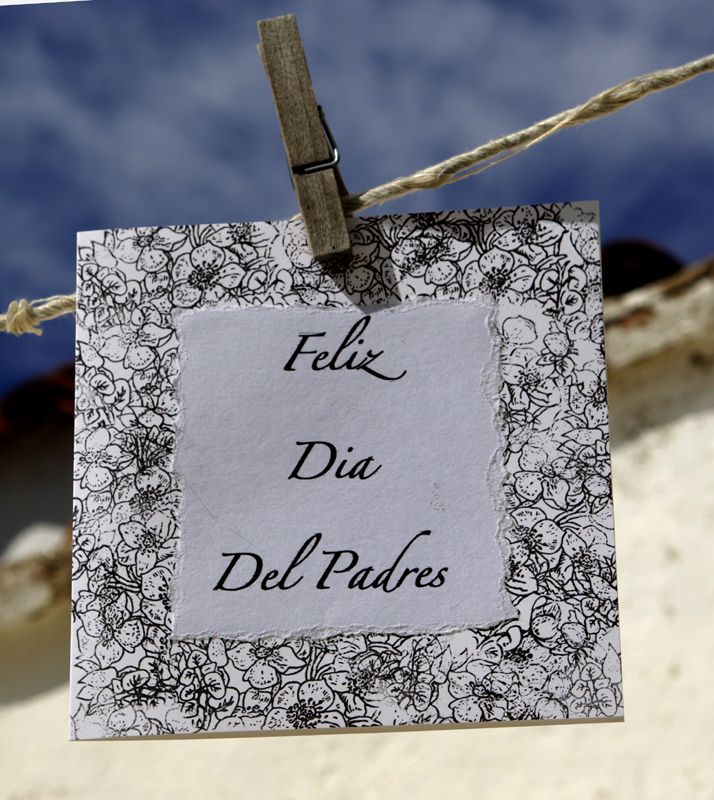 Feliz
Dia
Del Padres